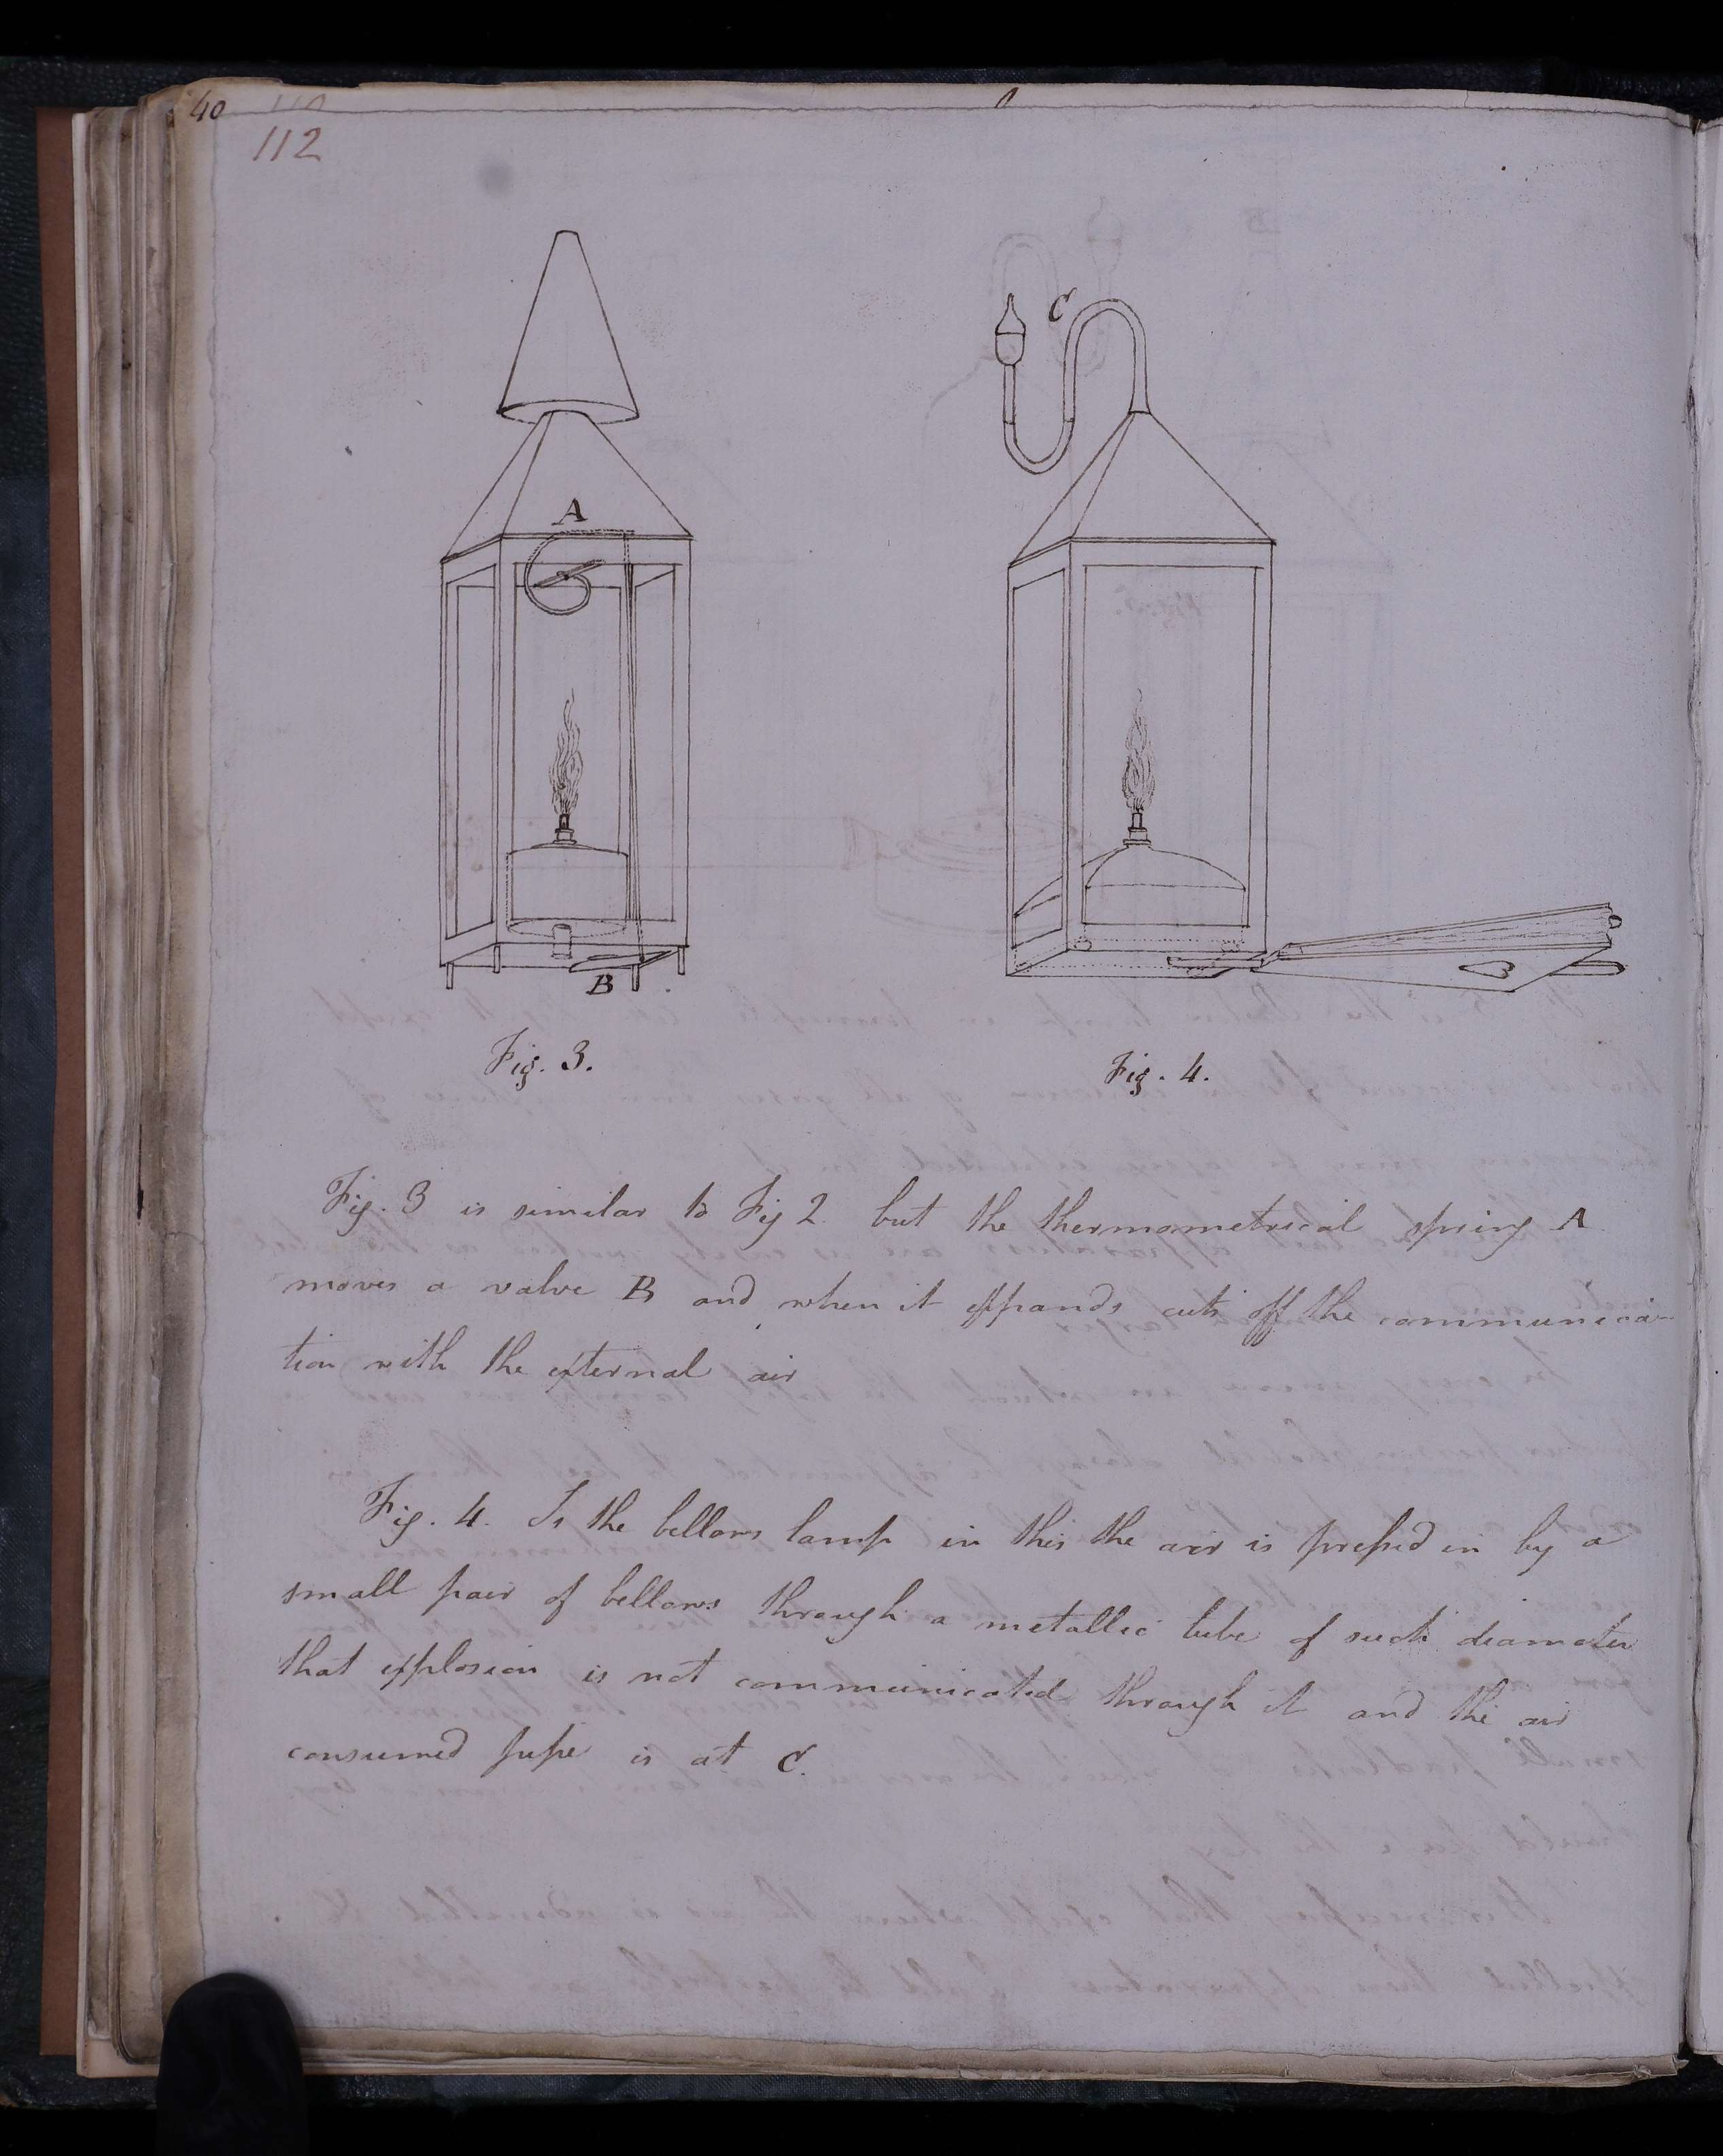 40
112
C
A
B
Fig. 3.
Fig. 4.
Fig. 3 is similar to Fig 2 but the thermometrical spring A
moves a valve B and when it expands cuts off the communica-
tion with the external air
Fig. 4. Is the bellows lamp in this the air is pressed in by a
small pair of bellows through a metallic tube of such diameter
that explosion is not communicated through it and the air
consumed pipe is at C.